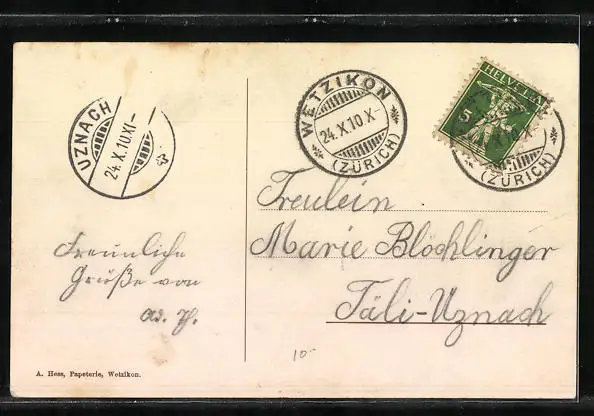 UZNACH
24.X.10.XI-
WETZIKON
24.X.10 X-
(ZÜRICH)
HELVETIA
5
(ZÜRICH)
Freulein
Marie Blöchlinger
Täli-Uznach
Freunliche
Grüße von
A. Hess, Papeterie, Wetzikon.
10-